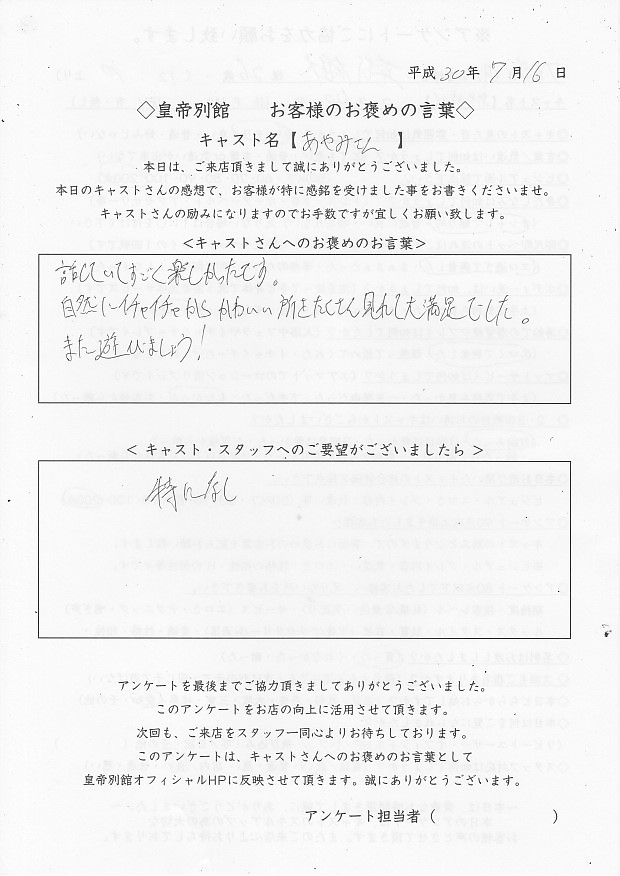 平成30年7月16日
◇皇帝別館　　お客様のお褒めの言葉◇
キャスト名【 あやみさん 】
本日は、ご来店頂きまして誠にありがとうございました。
本日のキャストさんの感想で、お客様が特に感銘を受けました事をお書きくださいませ。
キャストさんの励みになりますのでお手数ですが宜しくお願い致します。
<キャストさんへのお褒めのお言葉>
話していてすごく楽しかったです。
自然にイチャイチャからかわいい所をたくさん見れて大満足でした。
また遊びましょう!
< キャスト・スタッフへのご要望がございましたら >
特になし
アンケートを最後までご協力頂きましてありがとうございました。
このアンケートをお店の向上に活用させて頂きます。
次回も、ご来店をスタッフ一同心よりお待ちしております。
このアンケートは、キャストさんへのお褒めのお言葉として
皇帝別館オフィシャルHPに反映させて頂きます。誠にありがとうございます。
アンケート担当者（　　　　　　）